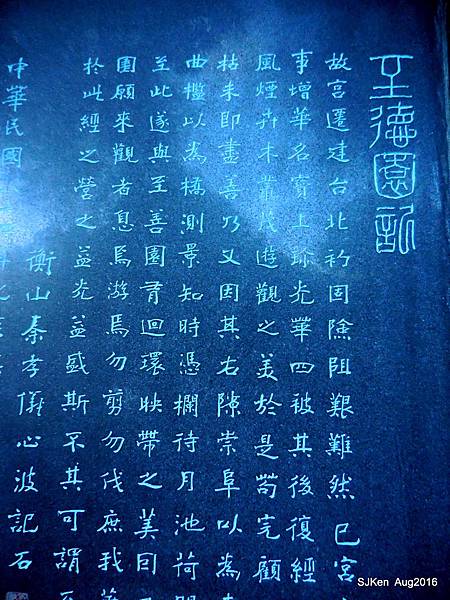 至德園記
故宮遷建台北初固險阻艱難然已宮
事增華名實上躋光華四被其後復經
風煙卉木叢茂遊觀之美於是苟完顧
枯未即盡善乃又因其右隙崇阜以為
曲檻以為橋測景知時憑欄待月池荷
至此遂與至善園昔迴環映帶之美曰
園願來觀者息焉游焉勿剪勿伐庶我
於此經之營之益光益盛斯不其可謂
衡山秦孝儀心波記石
中華民國
SJKen Aug2016